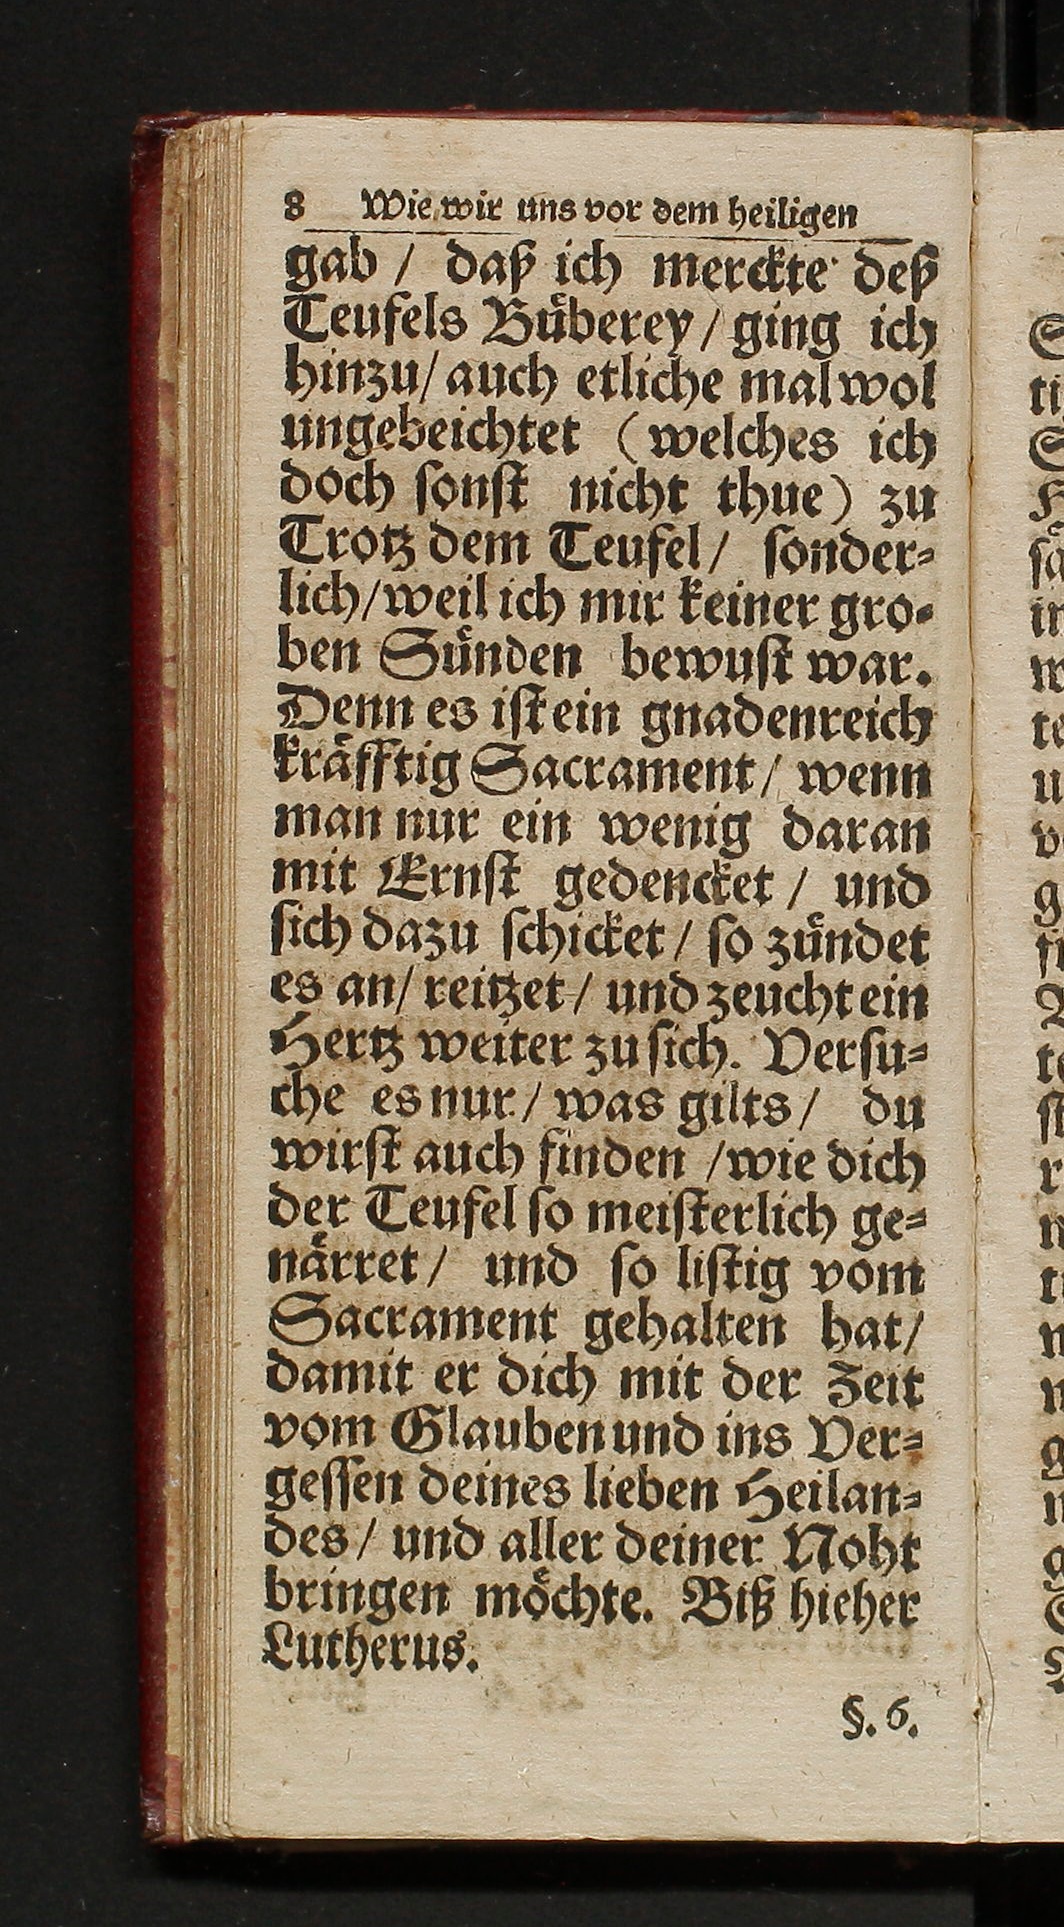 8 Wie wir uns vor dem heiligen
gab / daß ich merckte deß
Teufels Bůberey / ging ich
hinzu / auch etliche mal wol
ungebeichtet (welches ich
doch sonst nicht thue) zu
Trotz dem Teufel / sonder-
lich / weil ich mir keiner gro-
ben Sünden bewust war.
Denn es ist ein gnadenreich
kräfftig Sacrament / wenn
man nur ein wenig daran
mit Ernst gedencket / und
sich dazu schicket / so zündet
es an / reitzet / und zeucht ein
Hertz weiter zu sich. Versu-
che es nur / was gilts / du
wirst auch finden / wie dich
der Teufel so meisterlich ge-
närret / und so listig vom
Sacrament gehalten hat /
damit er dich mit der Zeit
vom Glauben und ins Ver-
gessen deines lieben Heilan-
des / und aller deiner Noht
bringen möchte. Biß hieher
Lutherus.
§. 6.